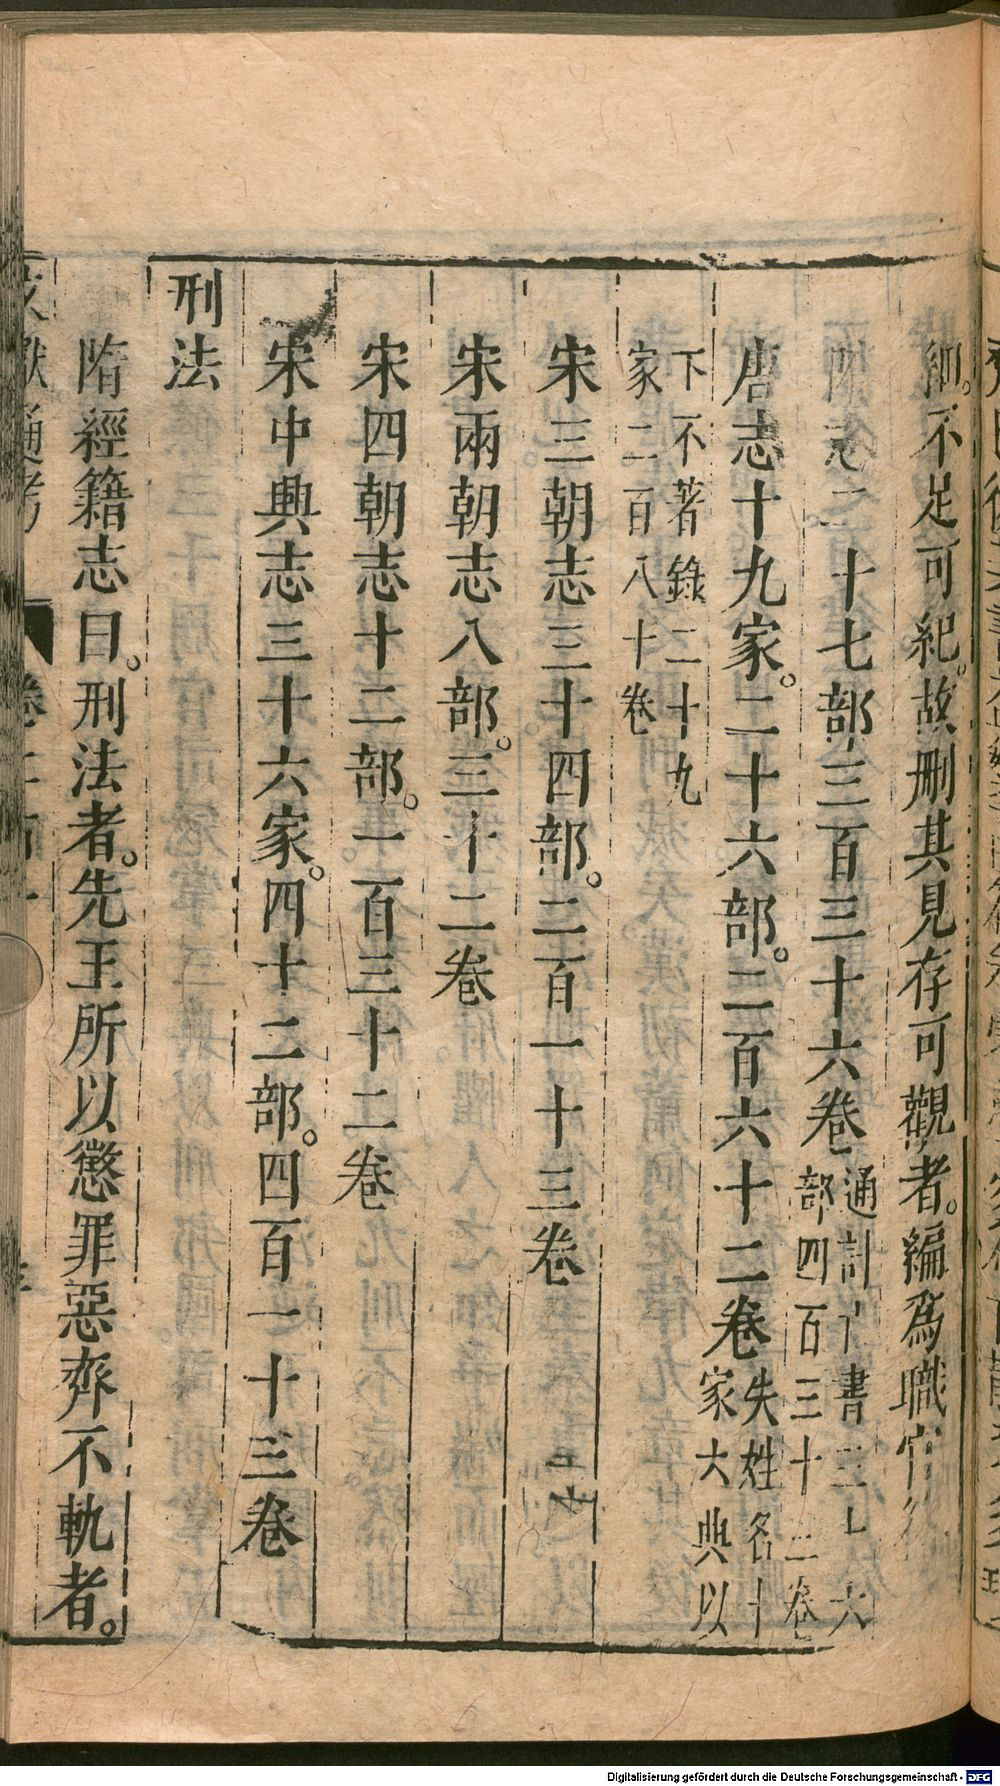 細。不足可紀。故刪其見存可觀者。編爲職官
隋志二十七部三百三十六卷
通計亡書三十六
部四百三十三卷
唐志十九家。二十六部。二百六十二卷
失姓名十
家六典以
下不著錄二十九
家二百八十卷
宋三朝志三十四部。二百一十三卷
宋兩朝志八部。三十二卷
宋四朝志十二部。一百三十二卷
宋中興志三十六家。四十二部。四百一十三卷
刑法
隋經籍志曰。刑法者。先王所以懲罪惡齊不軌者。
文獻通考
卷二百一
Digitalisierung gefördert durch die Deutsche Forschungsgemeinschaft - DFG